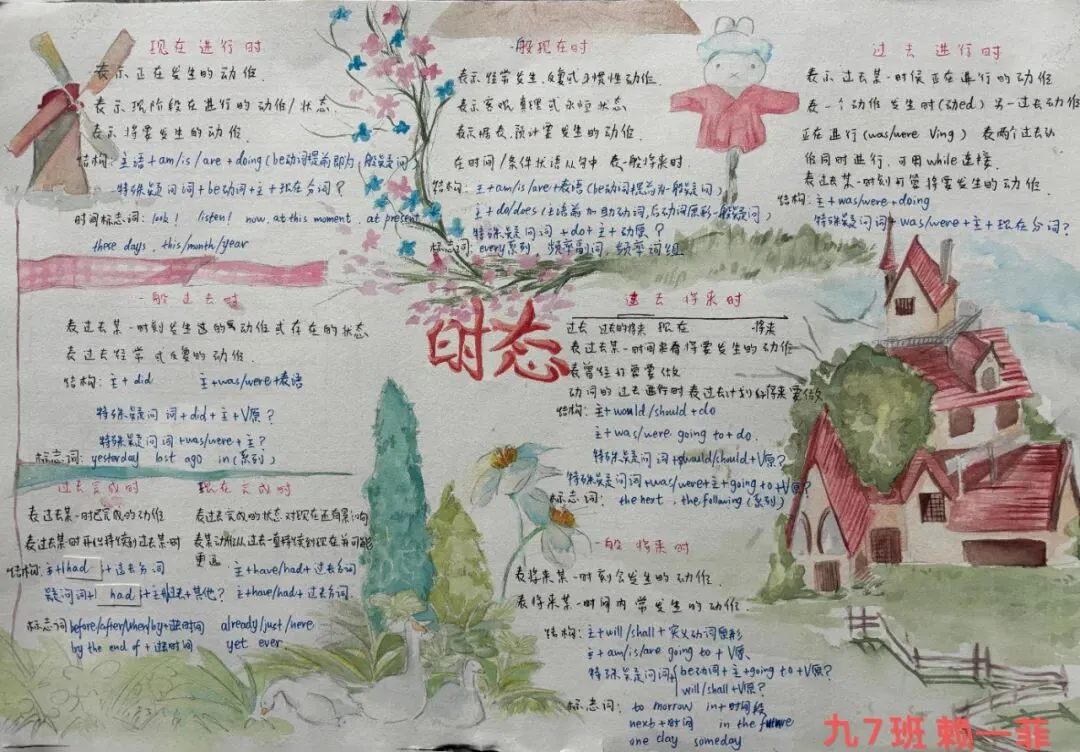 现在进行时
表示正在发生的动作.
表示现阶段在进行的动作/状态
表示将要发生的动作
结构: 主语+am/is/are+doing(be动词提前即为一般疑问)
特殊疑问词+be动词+主+现在分词?
时间标志词: look! listen! now, at this moment, at present
these days, this/month/year
一般现在时
表示经常发生、反复或习惯性动作.
表示客观真理或永恒状态
表示据表,预计要发生的动作.
在时间/条件状语从句中 表一般将来时.
结构: 主+am/is/are+表语(be动词提前为一般疑问)
主+do/does(主语前加助动词,后动词原形一般疑问)
特殊疑问词+do+主+动原?
标志词: every系列, 频率副词, 频率词组
过去进行时
表示过去某一时候正在进行的动作
表一个动作发生时(动ed)另一过去动作
正在进行(was/were Ving) 表两个过去动
作同时进行,可用while连接.
表过去某一时刻可当将要发生的动作.
结构: 主+was/were+doing
特殊疑问词+was/were+主+现在分词?
一般过去时
表过去某一时刻发生的动作或存在的状态
表过去经常或反复的动作.
结构: 主+did 主+was/were+表语
特殊疑问词+did+主+V原?
特殊疑问词+was/were+主?
标志词: yesterday last ago in(系列)
时态
过去将来时
过去 过去的将来 现在 将来
表过去某一时间来看将要发生的动作
表曾经打算要做
动词的过去进行时表过去计划好将来要做
结构: 主+would/should+do
主+was/were going to+do.
特殊疑问词+would/should+V原?
特殊疑问词+was/were+主+going to+V原?
标志词: the next, the following(系列)
过去完成时
表过去某一时已完成的动作
表过去某时开始持续到过去某一时
结构: 主+had+过去分词
疑问词+had+主+过去+其他?
标志词 before/after/when/by+过时间
by the end of+过时间
现在完成时
表过去完成的状态对现在还有影响
表某动作从过去一直持续到现在并可能
更远 主+have/had+过去分词
主+have/had+过去分词.
already/just/here
yet ever
一般将来时
表将来某一时刻会发生的动作.
表将来某一时间内常发生的动作.
结构: 主+will/shall+实义动词原形
主+am/is/are going to+V原、
特殊疑问词 be动词+主+going to+V原?
will/shall+V原?
标志词: to morrow in+时间段
next+时间 in the future
one day someday
九7班 赖一菲